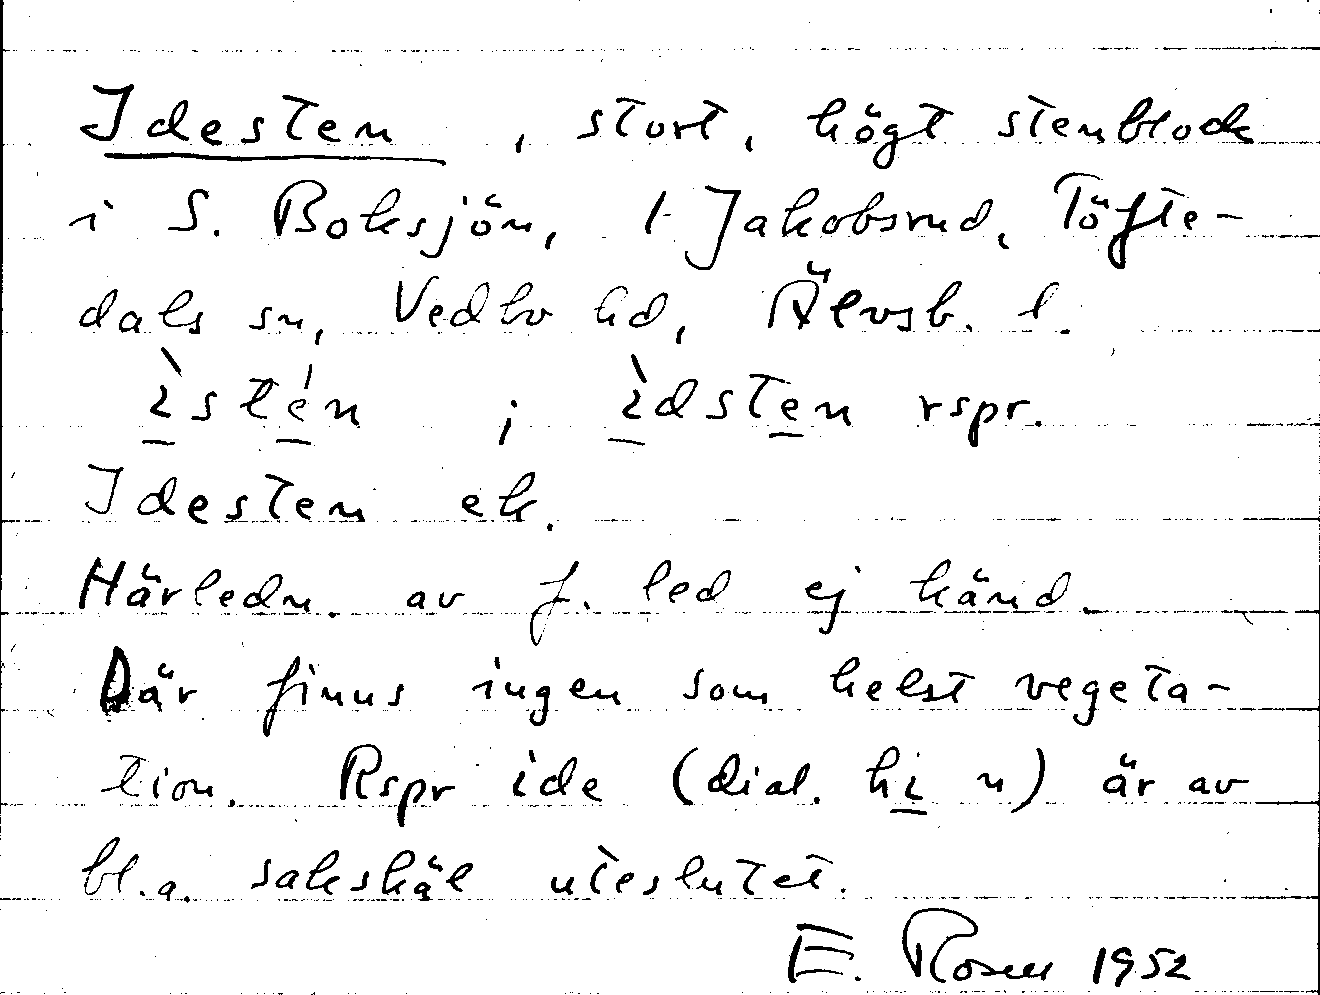 Idesten, stort, högt stenblock
i S. Boksjön, t Jakobsrud, Töfte-
dals sn, Vedbo hd, Älvsb. l.
ìstén ; ìdsten rspr.
Idesten ek.
Härledn. av f. led ej känd.
Där finns ingen som helst vegeta-
tion. Rspr ide (dial. hi n) är av
bl.a. sakskäl uteslutet.
E. Rosell 1952